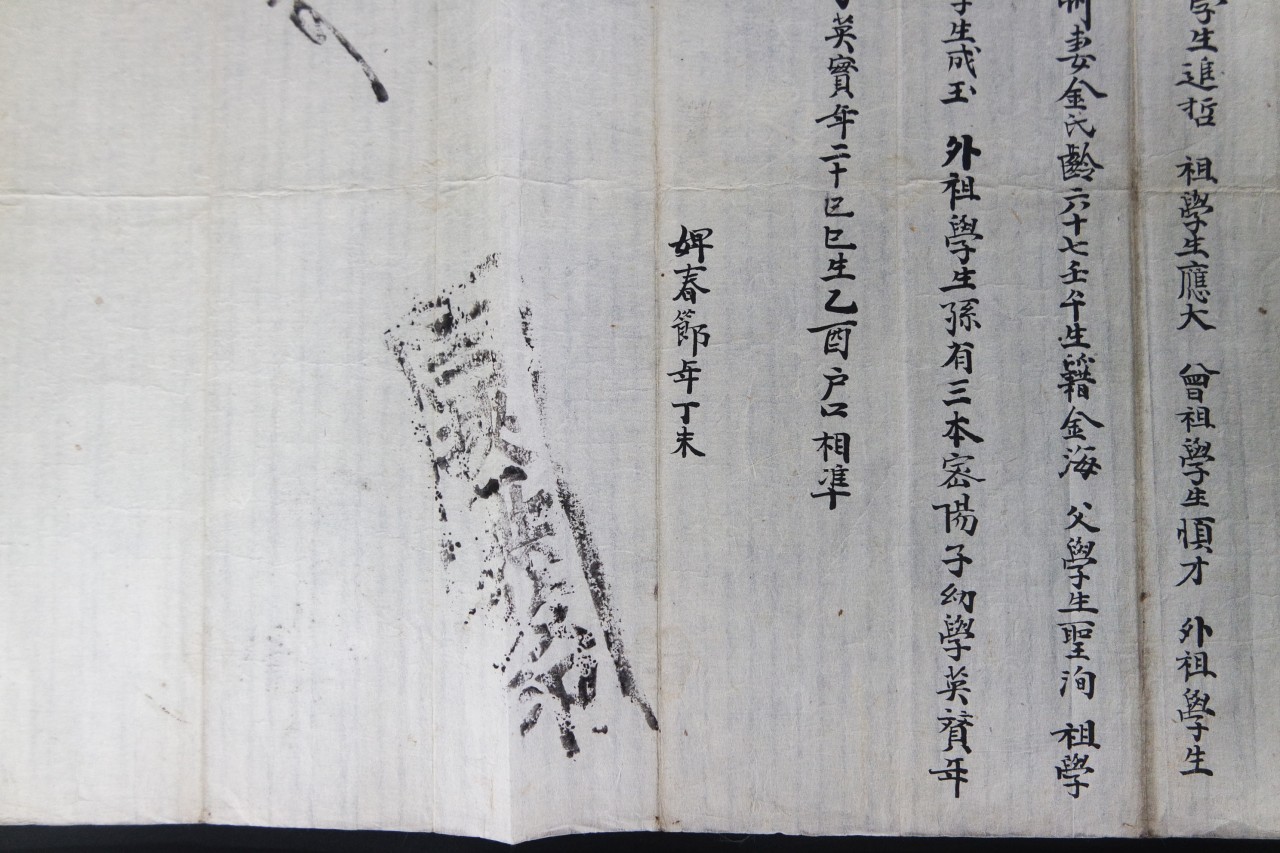 學生進哲 祖學生應大 曾祖學生愼才 外祖學生
妻金氏齡六十七壬午生籍金海 父學生聖洵 祖學
學生成玉 外祖學生孫有三本密陽子幼學英贇年
英實年二十巳己巳生乙酉戶口相準
婢春節年丁未